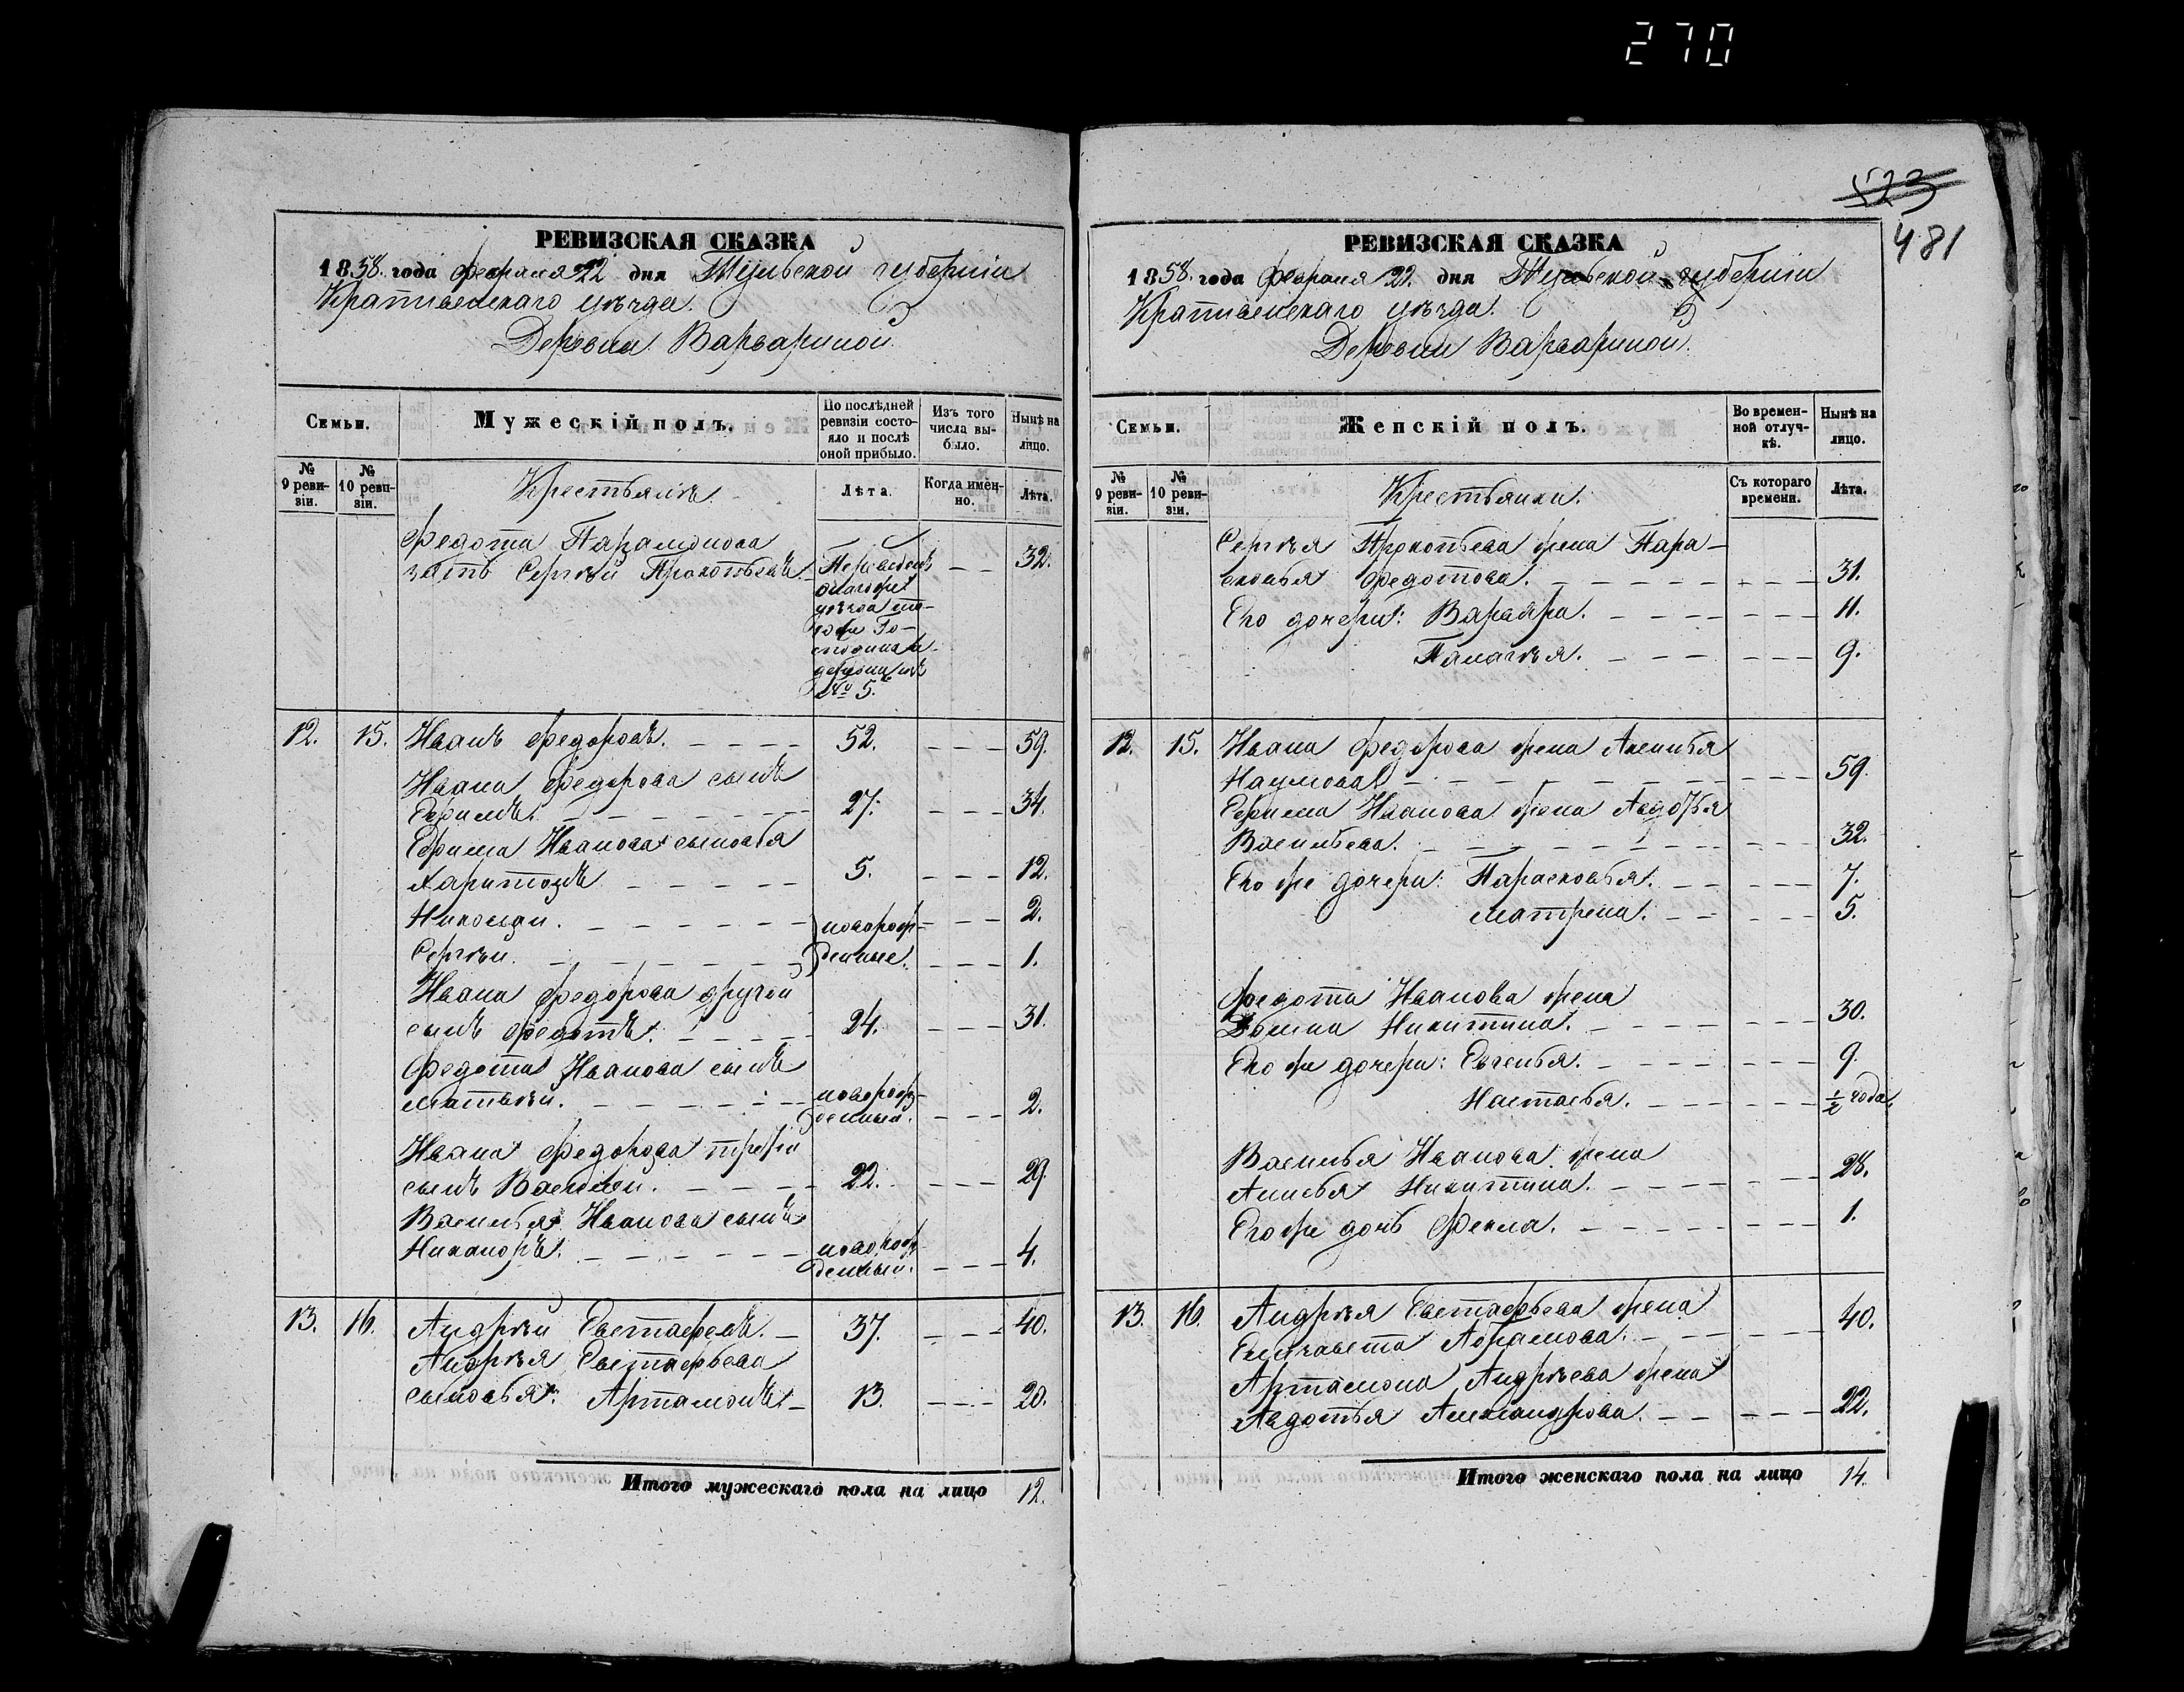 270
РЕВИЗСКАЯ СКАЗКА
1858. года февраля 22 дня Тульской губернiи
Крапивенскаго уѣзда.
Деревни Варвариной.
Семьи.
Мужескiй полъ.
По послѣдней ревизiи состо-
яло и послѣ
оной прибыло.
Изъ того
числа вы-
было.
Нынѣ на
лицо.
№
9 реви-
зiи.
№
10 реви-
зiи.
Крестьянѣ
Лѣта.
Когда имен-
но.
Лѣта.
Федота Парамонова
зять Сергѣй Прокопьевъ. 32.
Переведенъ
уѣзда то-
го же Го-
сподина
№ 5.
12. 15. Иванъ Федоровъ. 52. 59.
Ивана Федорова сынъ
Ефимъ. 27. 34.
Ефима Иванова сыновья
Харитонъ 5. 12.
Николай. новорож- 2.
Сергѣй. денные. 1.
Ивана Федорова другой
сынъ Федотъ. 24. 31.
Федота Иванова сынъ
Матвѣй. новорож- 2.
денный.
Ивана Федорова третiй
сынъ Василiй. 22. 29.
Василья Иванова сынъ
Никаноръ. новорож- 4.
денный.
13. 16. Андрѣй Евстафевъ. 37. 40.
Андрѣя Евстафьева
сыновья: Артамонъ. 13. 20.
Итого мужескаго пола на лицо 12.
523
481
РЕВИЗСКАЯ СКАЗКА
1858. года февраля 22. дня Тульской губернiи
Крапивенскаго уѣзда.
Деревни Варвариной.
Семьи.
Женскiй полъ.
Во времен-
ной отлуч-
кѣ.
Нынѣ на
лицо.
№
9 реви-
зiи.
№
10 реви-
зiи.
Крестьянки.
Съ котораго
времени.
Лѣта.
Сергѣя Прокопьева жена Пара-
сковья Федотова. 31.
Его дочери: Варвара. 11.
Палагѣя. 9.
12. 15. Ивана Федорова жена Аксинья
Наумова 59.
Ефима Иванова жена Авдотья
Васильева. 32.
Его же дочери: Парасковья. 7.
Матрена. 5.
Федота Иванова жена
Домна Никитина. 30.
Его же дочери: Евгенья. 9.
Настасья. ½ года.
Василья Иванова жена
Анисья Никитина. 28.
Его же дочь Фекла. 1.
13. 16. Андрѣя Евстафьева жена
Елизавета Абрамова. 40.
Артамона Андрѣева жена
Авдотья Александрова. 22.
Итого женскаго пола на лицо 14.